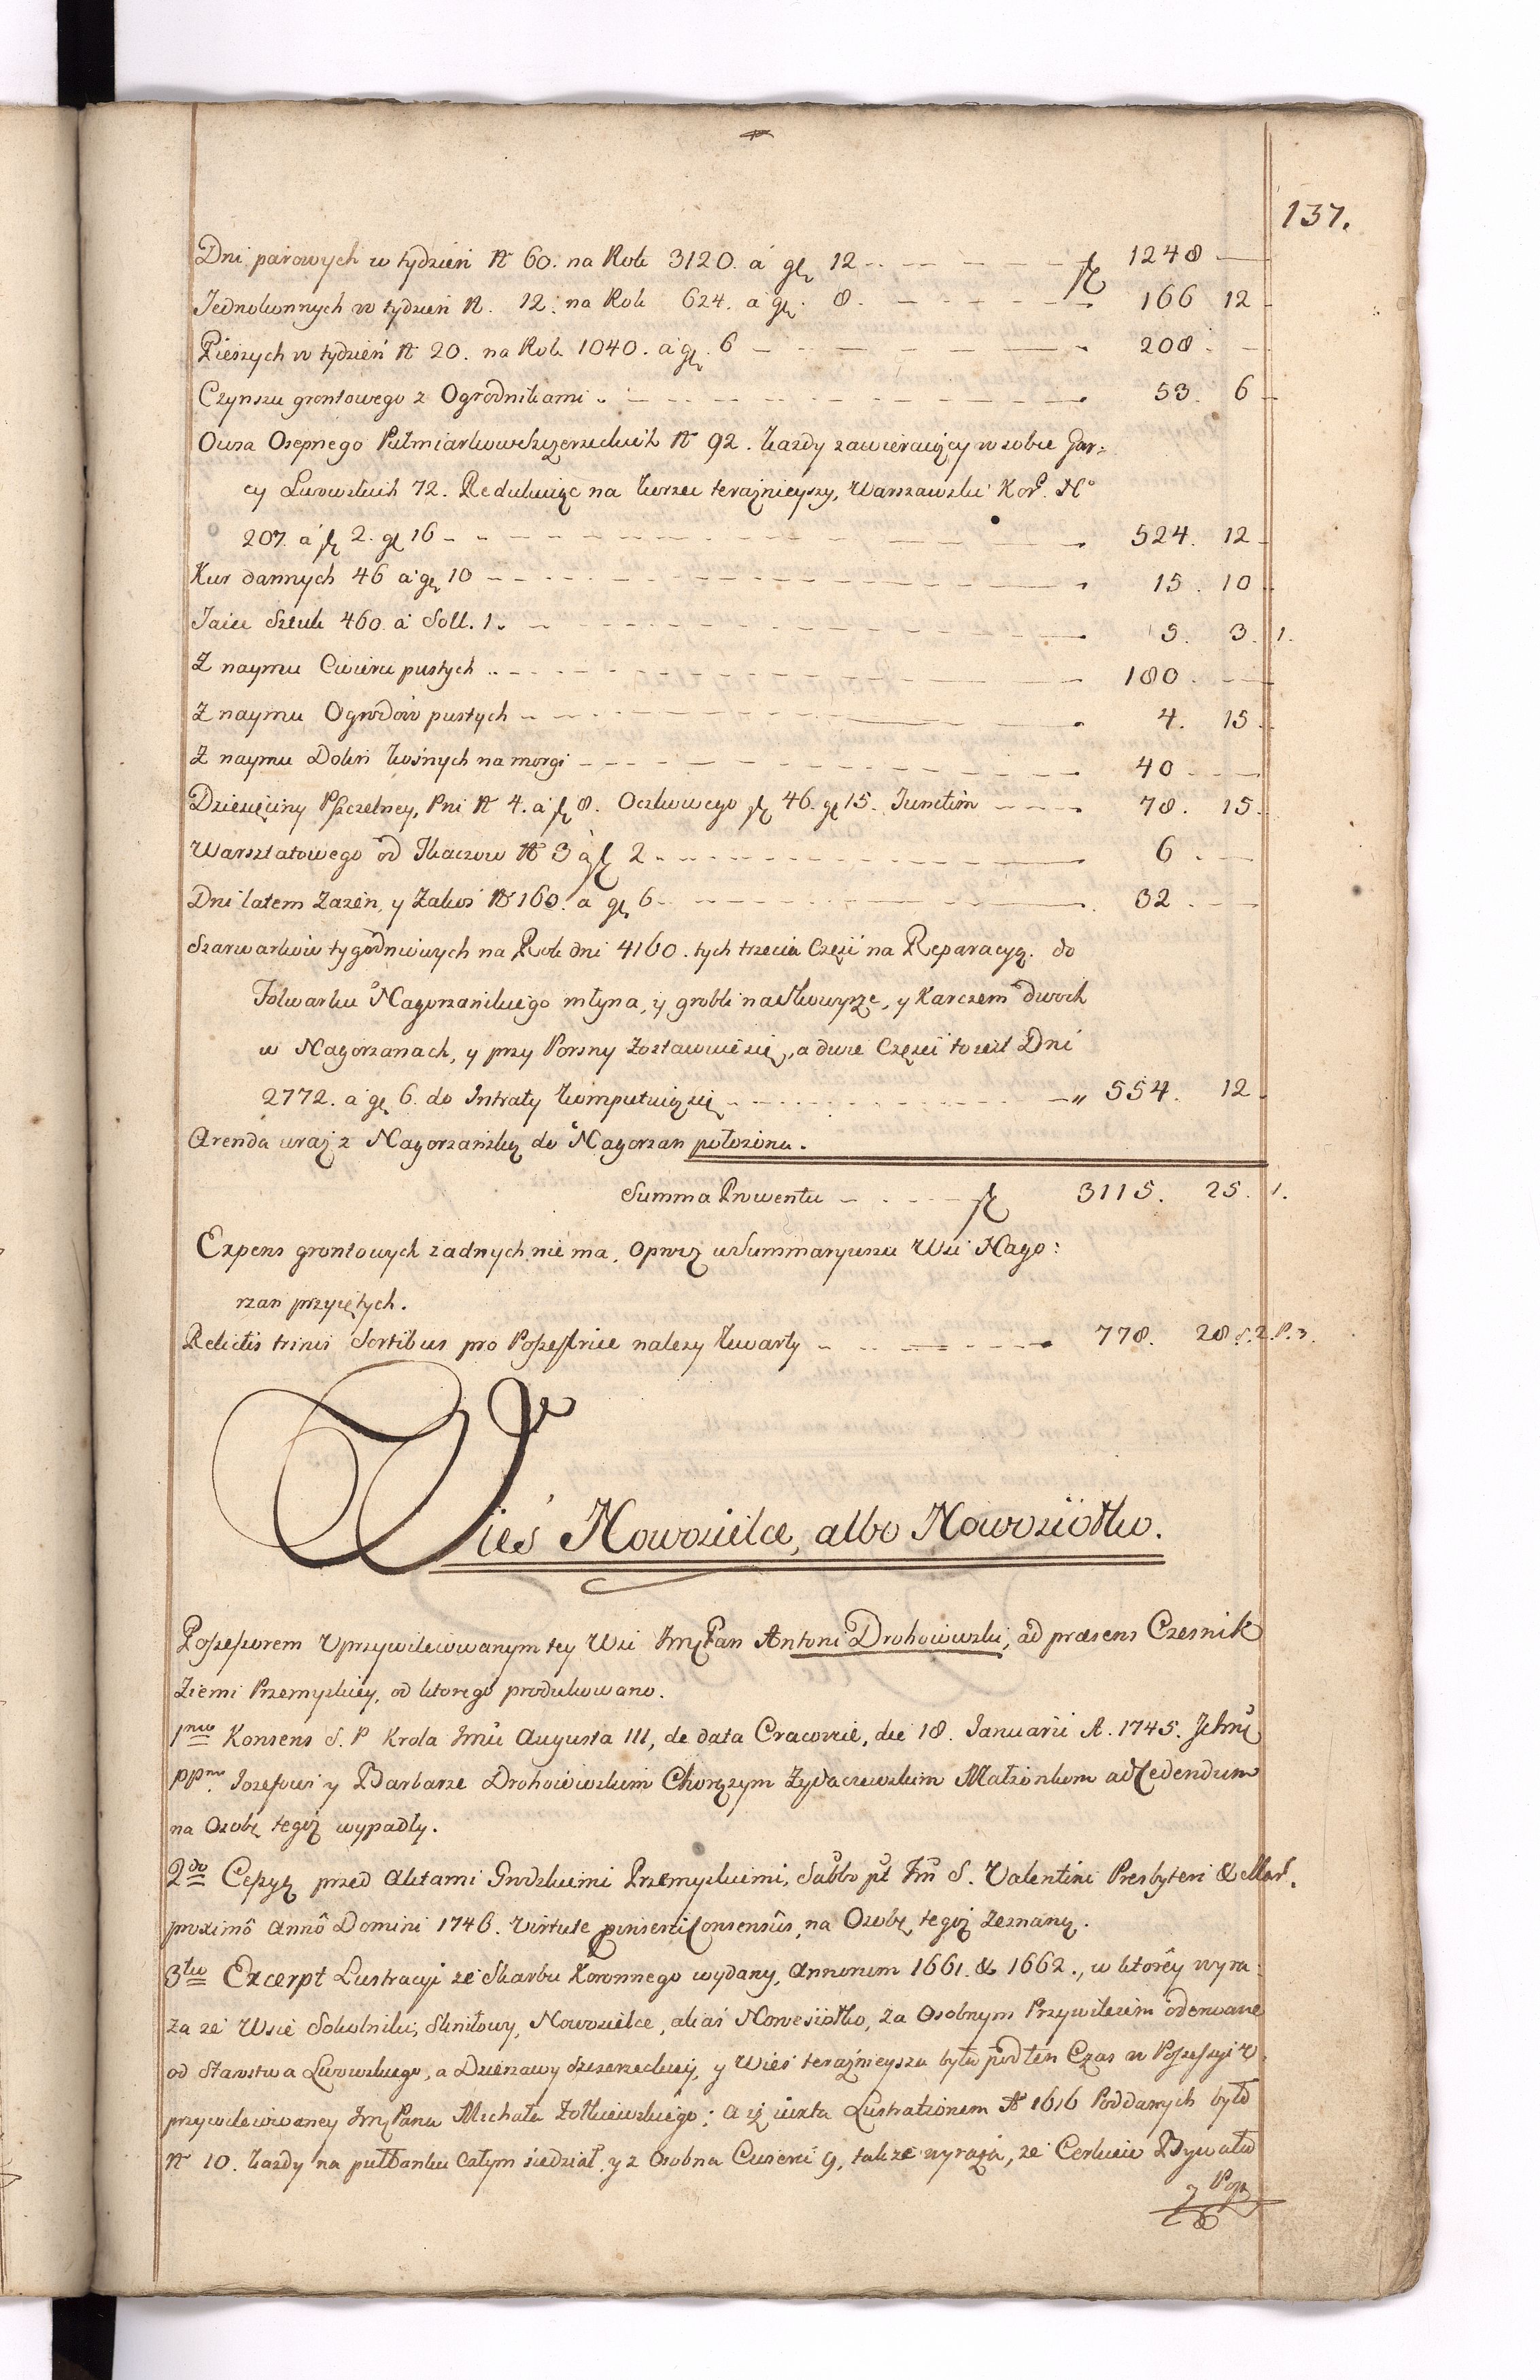 137.
Dni parowych w tydzień № 60. na Rok 3120. á gr 12 zł 1248
Jednokonnych w tydzień №. 12. na Rok 624. a gr. 8. 166 12
Pieszych w tydzień № 20. na Rok 1040. a gr. 6 208
Czynszu grontowego z Ogrodnikami 53. 6
Owsa Osepnego Pułmiarkow Szczerzeckich № 92. każdy zawieraiący w sobie Gar:
cy Lwowskich 72. Redukuiąc na korzec teraznieyszy, Warszawski Kor. N°
207. á zł 2. gr 16 524. 12
Kur dannych 46 a gr 10 15. 10
Jaiec Sztuk 460. a Soll. 1. 5. 3. 1.
Z naymu Cwierci pustych 180
Z naymu Ogrodów pustych 4. 15
Z naymu Dolin kośnych na morgi 40
Dziesięciny Pszczelney, Pni № 4. a zł 8. Oczkowego zł 46. gr 15. Junctim 78. 15
Warsztatowego od Tkaczow № 3 a zł 2 6
Dni latem Zażen, y Zakos № 160. a gr 6 32
Szarwarków tygodniowych na Rok dni 4160. tych trzecia Część na Reparacyą do
Folwarku Nagorzanskiego młyna, y grobli naskowyrze, y Karczem dwoch
w Nagorzanach, y przy Porzny zostawuie się, a dwie Części to iest Dni
2772. a gr 6. do Intraty komputuią się 554. 12
Arenda wraz z Nagorzańską do Nagorzan położona.
Summa Prowentu zł 3115. 25. 1.
Expens grontowych żadnych nie ma, oprocz w Summaryuszu Wsi Nago:
rzan przyiętych.
Relictis trinis Sortibus pro Possessore należy kwarty 778. 28 s. 2. P. 3.
Wieś Nowosielce, albo Nowosiołko.
Possessorem Uprzywileiowanym tey Wsi JmćPan Antoni Drohoiowski, ad præsens Czesnik
Ziemi Przemyskiey, od ktorego produkowano.
1mo Konsens S. P Krola Jmci Augusta III, de data Cracoviæ, die 18. Januarii A. 1745. Ichmć
PPm. Jozefowi y Barbarze Drohoiowskim Chorążym Żydaczewskim Małżonkom ad Cedendum
na Osobę tegoż wypadły.
2do Cessyą przed Aktami Grodzkiemi Przemyskiemi, Sabbo pt Fm S. Valentini Presbyteri & Mar.
proximô Annô Domini 1746. virtute præinserti Consensûs, na Osobę tegoż zeznaną.
3tio Excerpt Lustracyi ze Skarbu Koronnego wydany, Annorum 1661. & 1662., w ktorey wyra:
ża że Wsie Sokolniki, Skniłowy, Nowosielce, alias Nowesiołko, za Osobnym Przywileiem oderwane
od Starostwa Lwowskiego, a Dzierżawy Szczerzeckiey, y Wieś teraznieysza była podten Czas w Possessyi U:
przywileiowaney JmćPana Michała Żołkiewskiego; A iż iuxta Lustrationem A° 1616 Poddanych było
№ 10. każdy na pułłanku całym siedział, y z Osobna Cwierci 9, także wyraża, że Cerkiew Bywała
y Pop